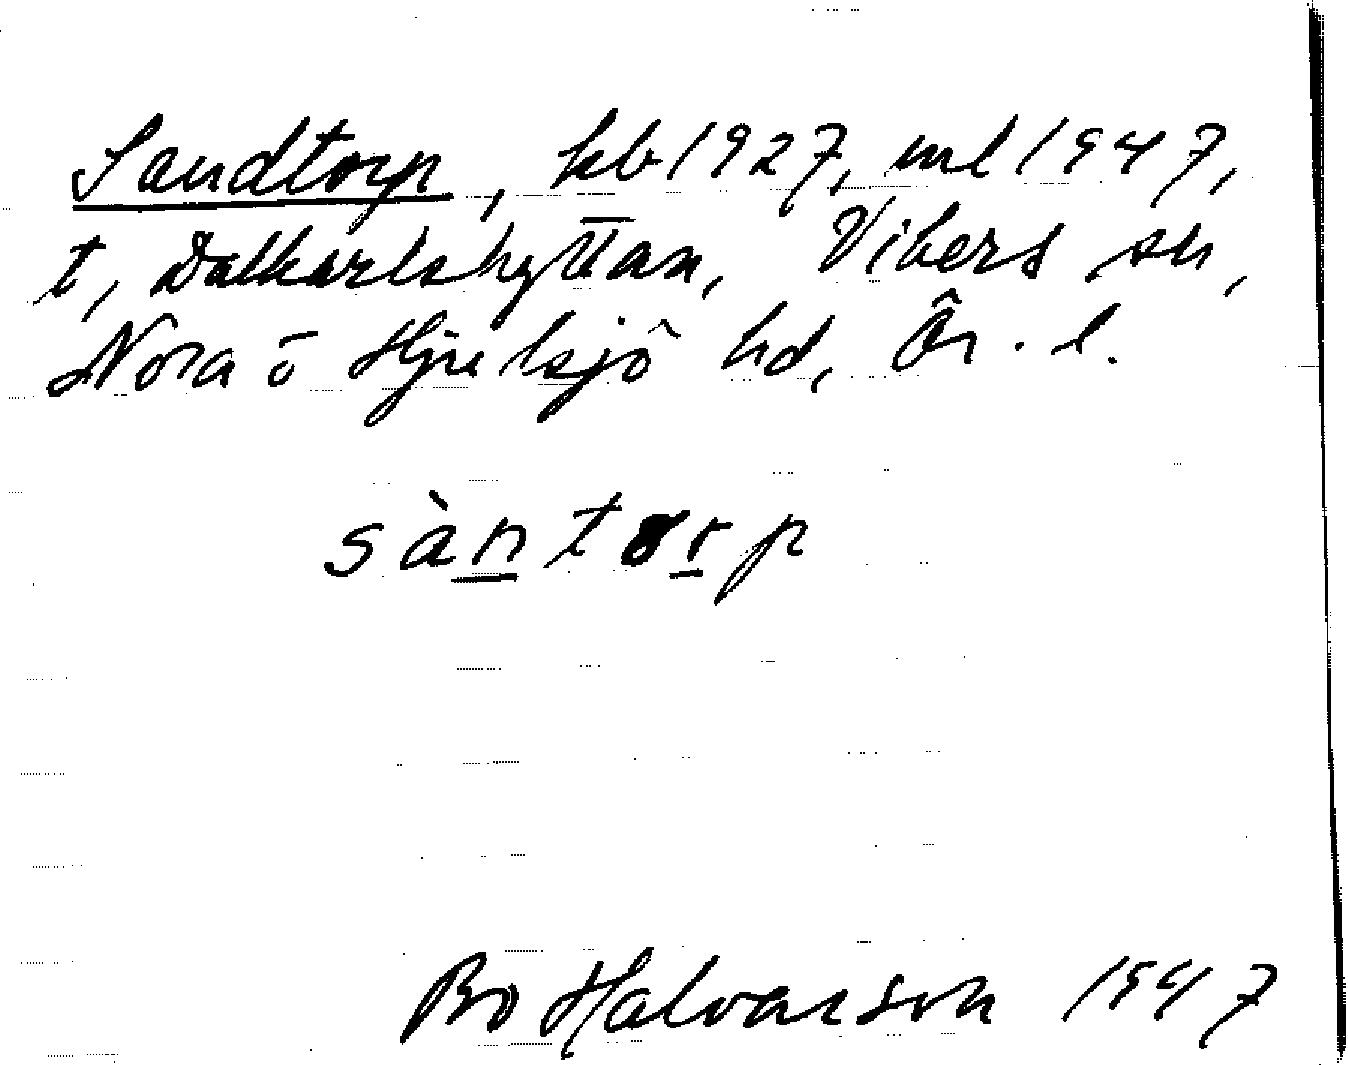 Sandtorp, kb 1927, ml 1947,
t, Dalkarlshyttan, Vibers sn,
Nora o Hjulsjö hd, Ör. l.
sàntorp
Bo Halvarson 1947